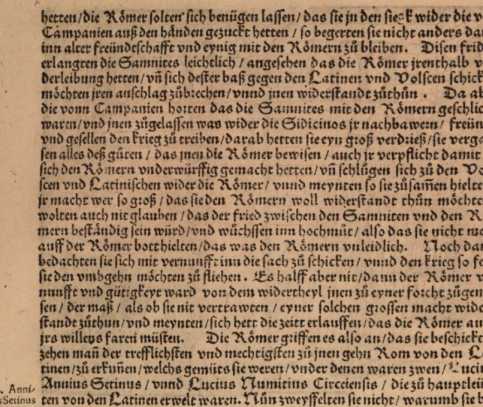 hetten/die Römer solten sich benügen lassen/das sie jn den sieg wider die v
Campanien auß den händen gezuckt hetten/so begerten sie nicht anders da
inn alter freündtschafft vnd eynig mit den Römern zů bleiben. Disen frid
erlangten die Samnites leichtlich/angesehen das die Römer jrenthalb v
derleibung hetten/vñ sich dester baß gegen den Latinen vnd Volscen schick
möchten jren anschlag zůbrechen/vnnd jnen widerstandt zůthůn. Da ab
die vonn Campanien horten das die Samnites mit den Römern geschlic
waren/vnd jnen zůgelassen was wider die Sidicinos jr nachbawern/freün
vnd gesellen den krieg zů treiben/darab hetten sie eyn groß verdrieß/sie verga
sen alles deß gůten/das jnen die Römer bewisen/auch jr verpflicht damit
sich den Römern vnderwürffig gemacht hetten/vñ schlůgen sich zů den Vo
scen vnd Latinischen wider die Römer/vnnd meynten so sie zůsam̃en hielte
jr macht wer so groß/das sie den Römern woll widerstandt thůn möchte
wolten auch nit glauben/das der frid zwischen den Samniten vnd den R
mern beständig sein würd/vnd wůchssen inn hochmůt/also das sie nicht me
auff der Römer bott hielten/das was den Römern vnleidlich. Noch dan
bedachten sie sich mit vernunfft inn die sach zů schicken/vnnd den krieg so fe
sie den vmbgehn möchten zů fliehen. Es halff aber nit/dann der Römer v
nunfft vnd gütigkeyt ward von dem widertheyl jnen zů eyner forcht zůgem
sen/der maß/als ob sie nit vertrawten/eyner solchen grossen macht wide
standt zůthun/vnd meynten/sich hett die zeitt erlauffen/das die Römer au
jrs willens faren müsten. Die Römer griffen es also an/das sie beschickt
zehen mañ der trefflichsten vnd mechtigsten zů jnen gehn Rom von den L
tinen/zů erkuñen/welchs gemüts sie weren/vnder denen waren zwen/Luciu
L. Anni- Annius Setinus/vnnd Lucius Numitius Circeiensis/die zů hauptleü
us Setinus ten von den Latinen erwelt waren. Nůn zweyffelten sie nicht/warumb sie b